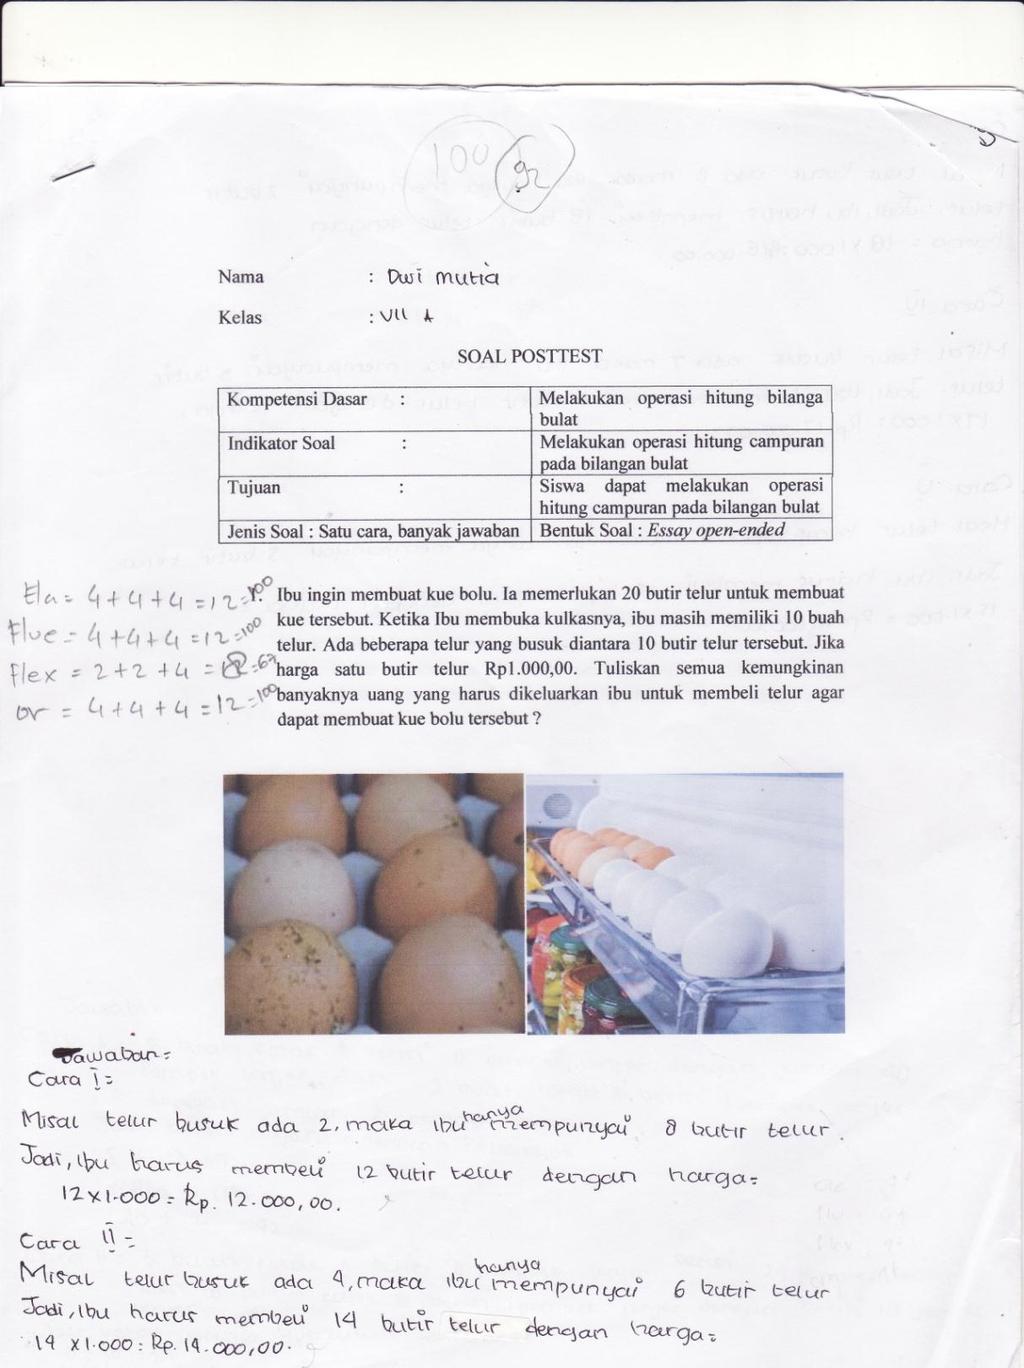 100 92
Nama : Dwi Mutia
Kelas : VII A
SOAL POSTTEST
Kompetensi Dasar : Melakukan operasi hitung bilanga
bulat
Indikator Soal : Melakukan operasi hitung campuran
pada bilangan bulat
Tujuan : Siswa dapat melakukan operasi
hitung campuran pada bilangan bulat
Jenis Soal : Satu cara, banyak jawaban Bentuk Soal : Essay open-ended
Ela = 4 + 4 + 4 = 12 = 100
Flue = 4 + 4 + 4 = 12 = 100
flex = 2 + 2 + 4 = 8 = 67
or = 4 + 4 + 4 = 12 = 100
1. Ibu ingin membuat kue bolu. Ia memerlukan 20 butir telur untuk membuat
kue tersebut. Ketika Ibu membuka kulkasnya, ibu masih memiliki 10 buah
telur. Ada beberapa telur yang busuk diantara 10 butir telur tersebut. Jika
harga satu butir telur Rp1.000,00. Tuliskan semua kemungkinan
banyaknya uang yang harus dikeluarkan ibu untuk membeli telur agar
dapat membuat kue bolu tersebut ?
Jawaban =
Cara I =
Misal telur busuk ada 2, maka ibu hanya mempunyai 8 butir telur.
Jadi, Ibu harus membeli 12 butir telur dengan harga =
12 x 1.000 = Rp. 12.000,00.
Cara II =
Misal telur busuk ada 4, maka ibu hanya mempunyai 6 butir telur
Jadi, Ibu harus membeli 14 butir telur dengan harga =
14 x 1.000 = Rp. 14.000,00.